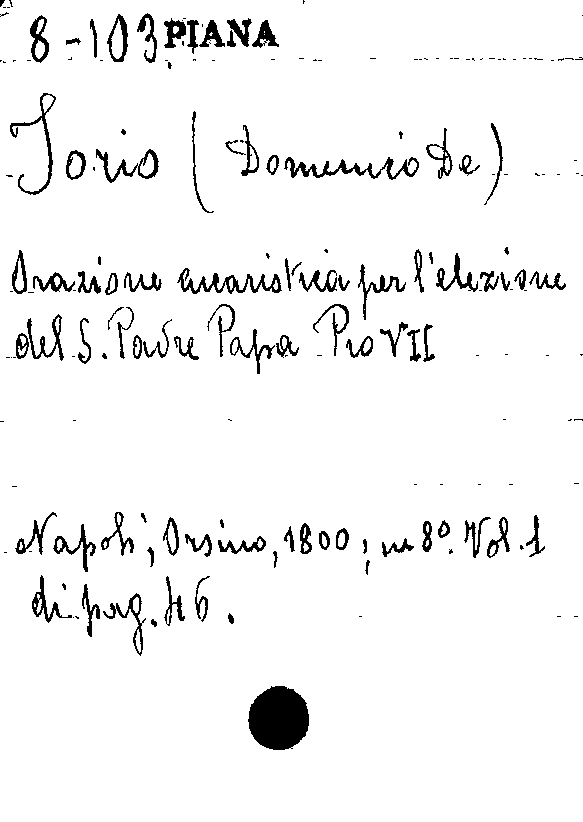 8-103 PIANA
Jorio (Domenico De)
Orazione eucaristica per l'elezione
del S. Padre Papa Pio VII
Napoli, Orsino, 1800; in 8º. Vol. 1
di pag. 46.